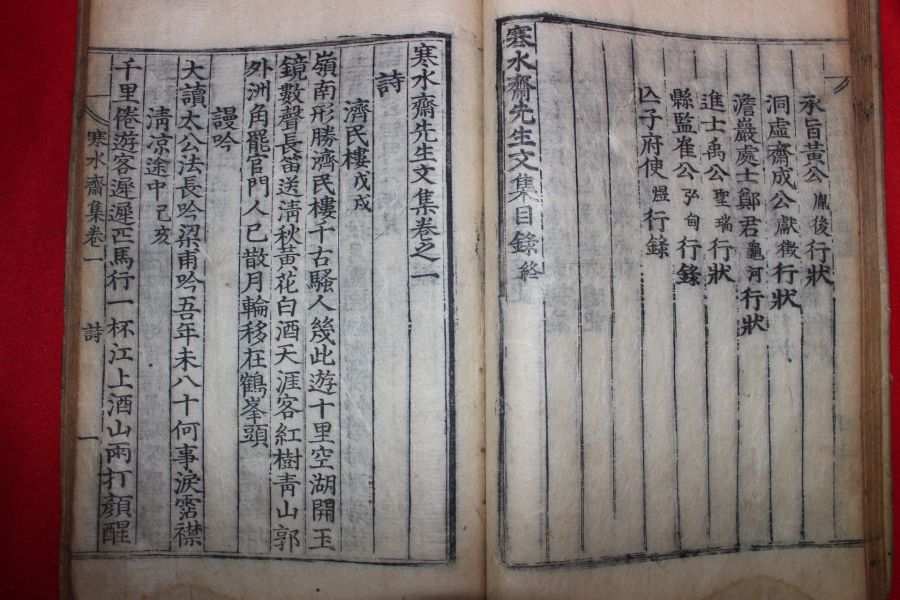 承旨黃公胤後行狀
洞虛齋成公獻徵行狀
澹巖處士鄭君龜河行狀
進士禹公聖瑞行狀
縣監崔公弘甸行錄
亾子府使煜行錄
寒水齋先生文集目錄終
寒水齋先生文集卷之一
詩
濟民樓戊戌
嶺南形勝濟民樓千古騷人幾此遊十里空湖開玉
鏡數聲長笛送淸秋黃花白酒天涯客紅樹靑山郭
外洲角罷官門人已散月輪移在鶴峯頭
謾吟
大讀太公法長吟梁甫吟吾年未八十何事淚霑襟
淸凉途中己亥
千里倦遊客遲遲匹馬行一杯江上酒山雨打顏醒
寒水齋集卷一 詩 一